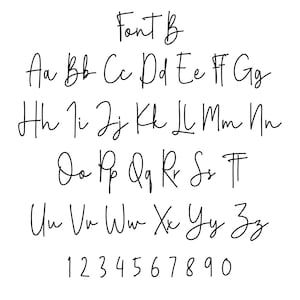 Font B
Aa Bb Cc Dd Ee Ff Gg
Hh Ii Jj Kk Ll Mm Nn
Oo Pp Qq Rr Ss Tt
Uu Vv Ww Xx Yy Zz
1 2 3 4 5 6 7 8 9 0